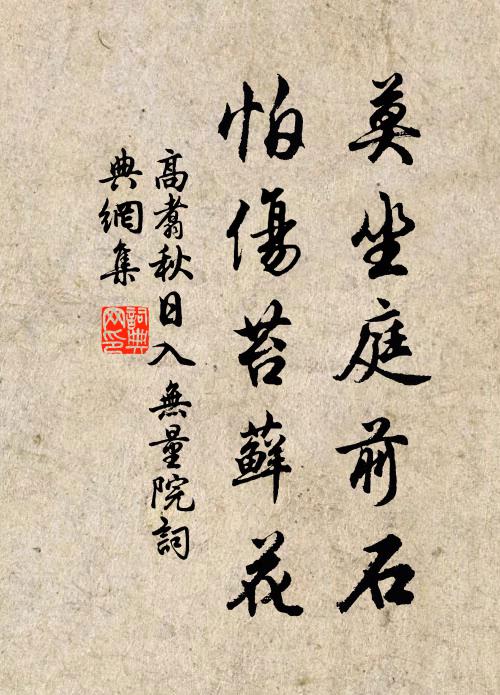 莫坐庭前石
怕傷苔蘚花
高翥秋日入無量院詞
典網集
詞典
网印